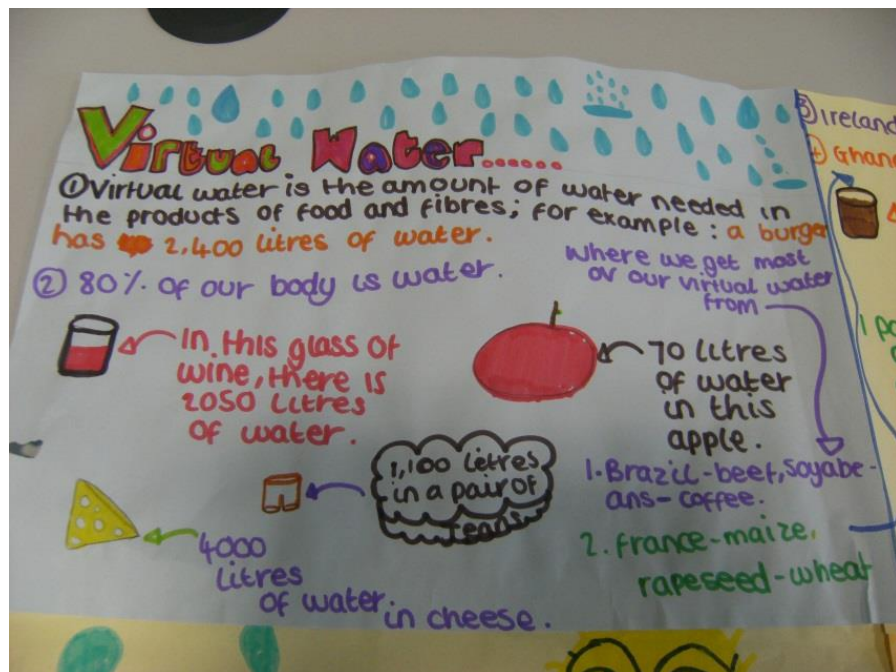 Virtual Water......
① Virtual water is the amount of water needed in
the products of food and fibres; for example: a burger
has 2,400 litres of water.
② 80% of our body is water.
where we get most
ov our virtual water
from
In this glass of
wine, there is
2050 litres
of water.
70 litres
of water
in this
apple.
1,100 litres
in a pair of
jeans
4000
litres
of water in cheese.
1. Brazil-beef, soyabe-
ans-coffee.
2. france-maize,
rapeseed-wheat
③ Ireland
④ Ghan